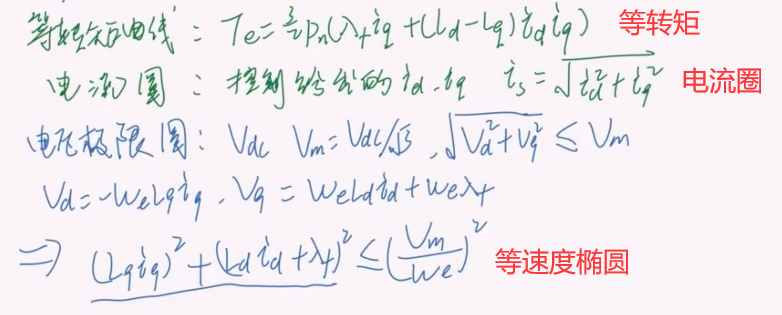 等转矩曲线: Te = 3/2 Pn(λf iq + (Ld - Lq) id iq) 等转矩
电流圆: 控制给出的 id、iq is = √(id² + iq²) 电流圈
电压极限圆: Vdc Vm = Vdc/√3, √(Vd² + Vq²) ≤ Vm
Vd = -WeLqiq, Vq = WeLdid + Weλf
⇒ (Lqiq)² + (Ldid + λf)² ≤ (Vm/We)² 等速度椭圆